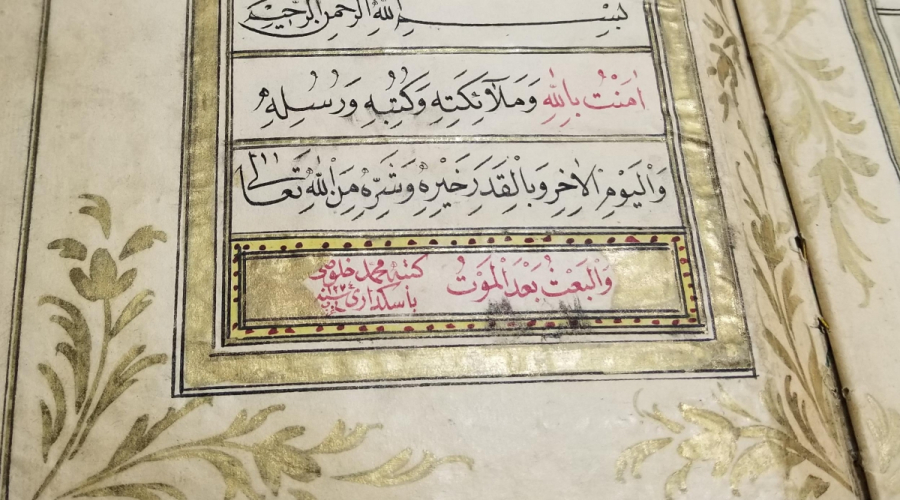 بِسْمِ اللّٰهِ الرَّحْمٰنِ الرَّحِيْمِ
اٰمَنْتُ بِاللّٰهِ وَمَلَآئِكَتِهِ وَكُتُبِهِ وَرُسُلِهِ
وَالْيَوْمِ الْاٰخِرِ وَبِالْقَدَرِ خَيْرِهِ وَشَرِّهِ مِنَ اللّٰهِ تَعَالٰى
وَالْبَعْثُ بَعْدَ الْمَوْتُ
كتبه محمد خلوصي
باسكداري سنه